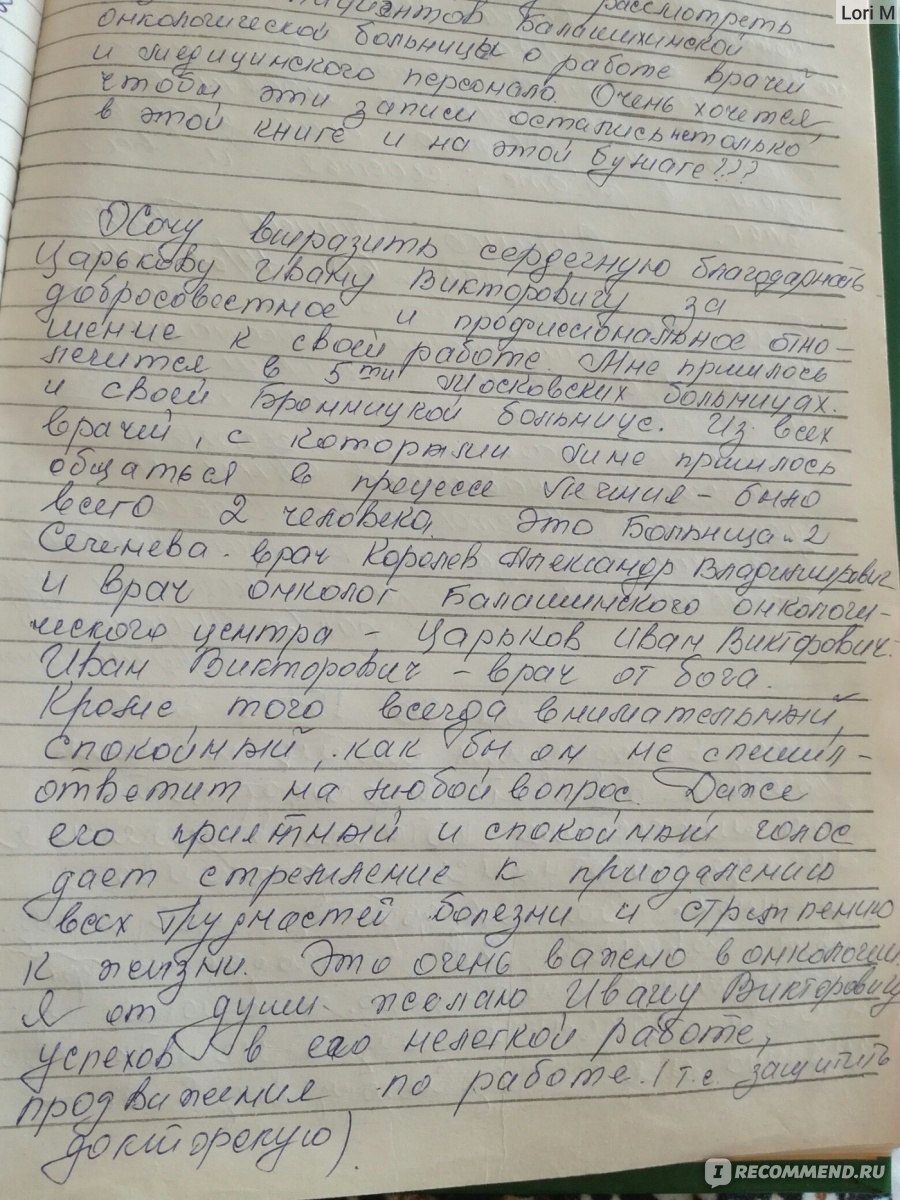 Lori M
рассмотреть
пациентов Балашихинской
онкологической больницы о работе врачей
и медицинского персонала. Очень хочется,
чтобы эти записи остались не только
в этой книге и на этой бумаге???
Хочу выразить сердечную благодарность
Царькову Ивану Викторовичу за
добросовестное и профиссиональное отно-
шение к своей работе. Мне пришлось
лечится в 5ти Московских больницах.
и своей Бронницкой больнице. Из всех
врачей, с которыми мне пришлось
общаться в процессе лечения - было
всего 2 человека. Это Больница 2
Сеченева. врач Королев Александр Владимирович
и врач онколог Балашинского онкологи-
ческого центра - Царьков Иван Викторович.
Иван Викторович - врач от бога.
Кроме того всегда внимательный,
спокойный, как бы он не спешил -
ответит на любой вопрос. Даже
его приятный и спокойный голос
дает стремление к приодалению
всех трудностей болезни и стремлению
к жизни. Это очень важно в онкологии
Я от души желаю Ивану Викторовичу
успехов в его нелегкой работе,
продвижения по работе. (т.е защитить
докторскую)
IRECOMMEND.RU